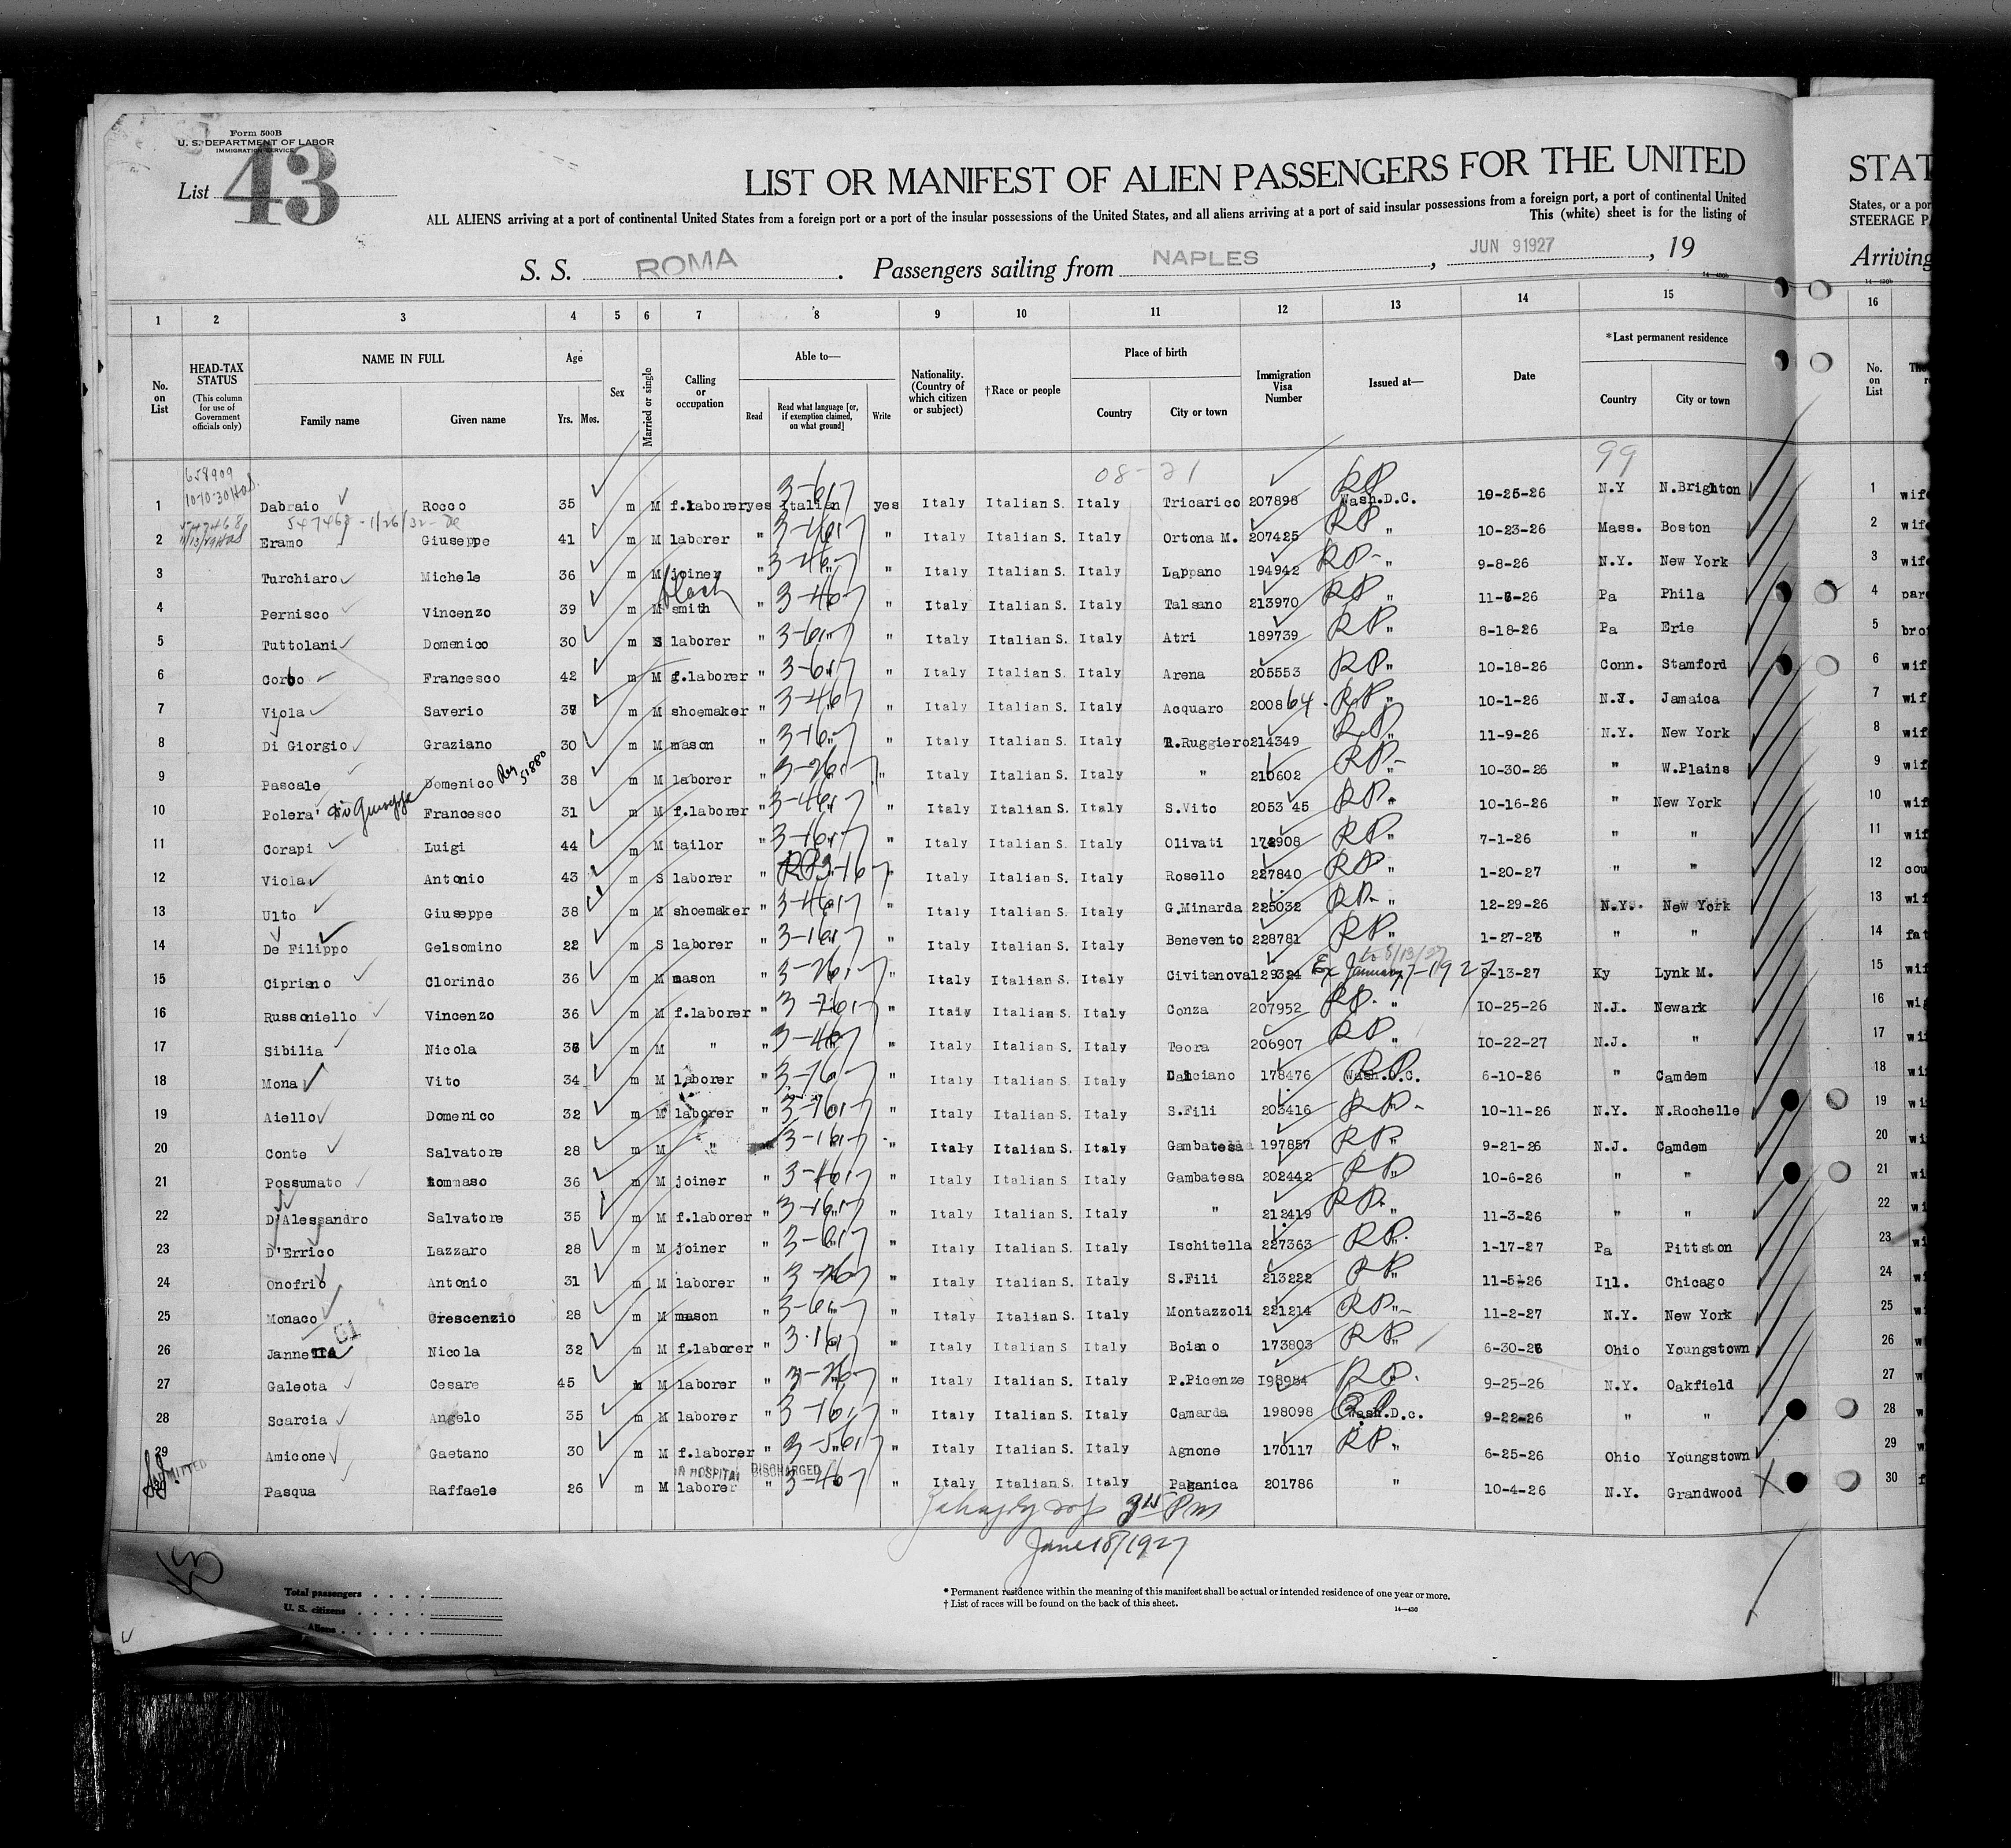 Form 500B
U. S. DEPARTMENT OF LABOR
IMMIGRATION SERVICE
List 43
LIST OR MANIFEST OF ALIEN PASSENGERS FOR THE UNITED
ALL ALIENS arriving at a port of continental United States from a foreign port or a port of the insular possessions of the United States, and all aliens arriving at a port of said insular possessions from a foreign port, a port of continental United
This (white) sheet is for the listing of
S. S. ROMA. Passengers sailing from NAPLES, JUN 9 1927, 19
14—430b
STAT
States, or a por
STEERAGE P
Arriving
14—430b
1 2 3 4 5 6 7 8 9 10 11 12 13 14 15 16
No. on List
HEAD-TAX STATUS (This column for use of Government officials only)
NAME IN FULL
Family name Given name
Age
Yrs. Mos.
Sex
Married or single
Calling or occupation
Able to—
Read Read what language [or, if exemption claimed, on what ground] Write
Nationality. (Country of which citizen or subject)
†Race or people
Place of birth
Country City or town
Immigration Visa Number
Issued at—
Date
*Last permanent residence
Country City or town
No. on List
658909
08-21 99
1 Dabraio Rocco 35 m M f.laborer yes Italian yes Italy Italian S. Italy Tricarico 207898 RP Wash.D.C. 10-25-26 N.Y N.Brighton 1 wife
547468 - 1/26/32
2 Eramo Giuseppe 41 m M laborer " " " Italy Italian S. Italy Ortona M. 207425 RP " 10-23-26 Mass. Boston 2 wife
3 Turchiaro Michele 36 m M joiner " " " Italy Italian S. Italy Lappano 194942 RP " 9-8-26 N.Y. New York 3 wife
4 Pernisco Vincenzo 39 m M black smith " " " Italy Italian S. Italy Talsano 213970 RP " 11-6-26 Pa Phila 4 par
5 Tuttolani Domenico 30 m S laborer " " " Italy Italian S. Italy Atri 189739 RP " 8-18-26 Pa Erie 5 bro
6 Corbo Francesco 42 m M f.laborer " " " Italy Italian S. Italy Arena 205553 RP " 10-18-26 Conn. Stamford 6 wif
7 Viola Saverio m M shoemaker " " " Italy Italian S. Italy Acquaro 200864 RP " 10-1-26 N.Y. Jamaica 7 wif
8 Di Giorgio Graziano 30 m M mason " " " Italy Italian S. Italy R.Ruggiero 214349 RP " 11-9-26 N.Y. New York 8 wif
9 Pascale Domenico 38 m M laborer " " " Italy Italian S. Italy " 210602 RP " 10-30-26 " W.Plains 9 wif
10 Polera' di Giuseppe Francesco 31 m M f.laborer " " " Italy Italian S. Italy S.Vito 2053 45 RP " 10-16-26 " New York 10 wif
11 Corapi Luigi 44 m M tailor " " " Italy Italian S. Italy Olivati RP " 7-1-26 " " 11 wif
12 Viola Antonio 43 m S laborer " " " Italy Italian S. Italy Rosello 227840 RP " 1-20-27 " " 12 cou
13 Ulto Giuseppe 38 m M shoemaker " " " Italy Italian S. Italy G.Minarda 225032 RP " 12-29-26 N.Y. New York 13 wif
14 De Filippo Gelsomino 22 m S laborer " " " Italy Italian S. Italy Benevento 228781 RP " " " 14 fat
15 Cipriano Clorindo 36 m M mason " " " Italy Italian S. Italy Civitanova Ex January 7-1927 8-13-27 Ky Lynk M. 15 wif
16 Russoniello Vincenzo 36 m M f.laborer " " " Italy Italian S. Italy Conza 207952 RP " 10-25-26 N.J. Newark 16 wi
17 Sibilia Nicola m M " " " " Italy Italian S. Italy Teora 206907 RP " 10-22-27 N.J. " 17 wi
18 Mona Vito 34 m M laborer " " " Italy Italian S. Italy 178476 RP Wash.D.C. 6-10-26 " Camdem 18 wi
19 Aiello Domenico 32 m M laborer " " " Italy Italian S. Italy S.Fili 203416 RP " 10-11-26 N.Y. N.Rochelle 19 wi
20 Conte Salvatore 28 m M " " " Italy Italian S. Italy Gambatesa 197857 RP " 9-21-26 N.J. Camdem 20 wi
21 Possumato Tommaso 36 m M joiner " " " Italy Italian S Italy Gambatesa 202442 RP " 10-6-26 " " 21 wi
22 D'Alessandro Salvatore 35 m M f.laborer " " " Italy Italian S. Italy " 212419 RP " 11-3-26 " " 22 wi
23 D'Errico Lazzaro 28 m M joiner " " " Italy Italian S. Italy Ischitella 227363 RP " 1-17-27 Pa Pittston 23 wi
24 Onofrio Antonio 31 m M laborer " " " Italy Italian S. Italy S.Fili 213222 RP " 11-5-26 Ill. Chicago 24 w
25 Monaco Crescenzio 28 m M mason " " " Italy Italian S. Italy Montazzoli 221214 RP " 11-2-27 N.Y. New York 25 w
26 Nicola 32 m M f.laborer " " " Italy Italian S Italy Boiano 173803 RP " Ohio Youngstown 26 w
27 Galeota Cesare 45 m M laborer " " " Italy Italian S. Italy P.Picenze 198984 RP 9-25-26 N.Y. Oakfield 27 w
28 Scarcia Angelo 35 m M laborer " " " Italy Italian S. Italy Camarda 198098 Wash.D.c. 9-22-26 " " 28 w
29 Amicone Gaetano 30 m M f.laborer " " " Italy Italian S. Italy Agnone 170117 RP " 6-25-26 Ohio Youngstown 29 w
IN HOSPITAL DISCHARGED
30 Pasqua Raffaele 26 m M laborer " " " Italy Italian S. Italy Paganica 201786 " 10-4-26 N.Y. Grandwood 30 f
June 18/1927
43
Total passengers
U. S. citizens
Aliens
* Permanent residence within the meaning of this manifest shall be actual or intended residence of one year or more.
† List of races will be found on the back of this sheet.
14—430